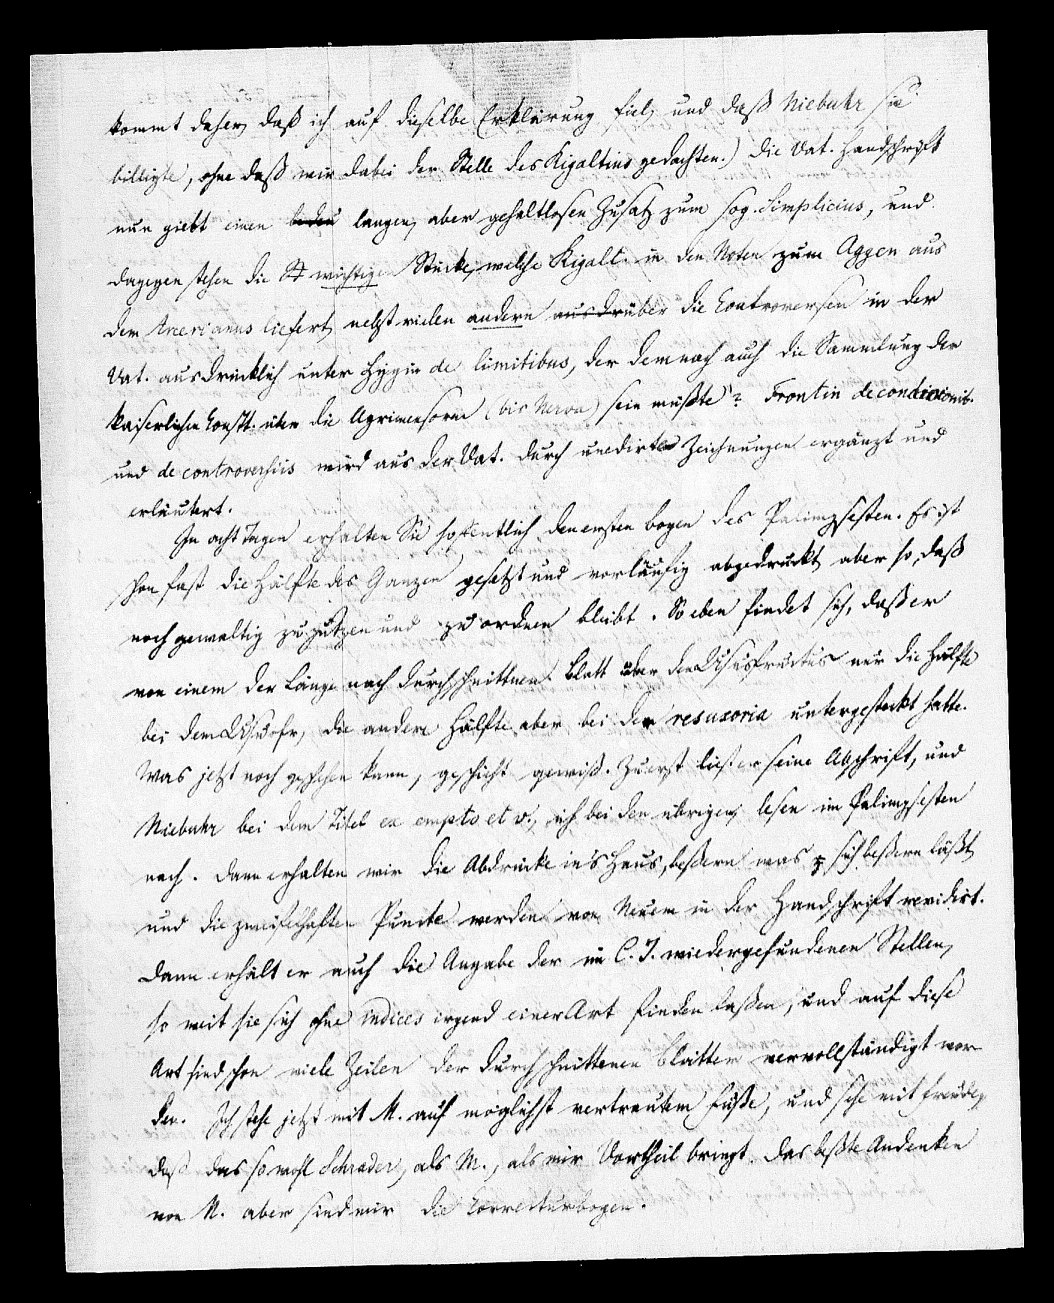 kommt daher, daß ich auf dieselbe Erklärung fiel, und daß Niebuhr sie
billigte, ohne daß wir dabei der Stelle des Rigaltius gedachten.) Die Vat. Handschrift
nun giebt einen langen, aber gehaltlosen Zusatz zum sog. Simplicius, und
dagegen stehen die wichtigen Stücke, welche Rigalt. in den Noten zum Aggen aus
dem Arcerianus liefert, nebst vielen andern ausdrüber die Controversen in der
Vat. ausdrücklich unter Hygin de limitibus, der demnach auch die Sammlung der
kaiserlichen Constt. über die Agrimensoren (bis Nerva) sein müßte? Frontin de condicionib.
und de controversiis wird aus der Vat. durch unedirte Zeichnungen ergänzt und
erläutert.
In acht Tagen erhalten Sie hoffentlich den ersten bogen des Palimpsesten. Es ist
schon fast die Hälfte des Ganzen gesetzt und vorläufig abgedruckt, aber so, daß
noch gewaltig zu putzen und zu ordnen bleibt. So eben findet sich, daß er
von einem der Länge nach durchschnittnen Blatt über den Ususfructus nur die Hälfte
bei dem Ususfr, die andere Hälfte aber bei der re uxoria untergesteckt hatte.
Was jetzt noch geschehen kann, geschieht gewiß. Zuerst ließt er seine Abschrift, und
Niebuhr bei dem Titel ex empto et v., ich bei den übrigen, lesen im Palimpsesten
nach. Dann erhalten wir die Abdrücke in's Haus, beßern was sich beßern läßt
und die zweifelhaften Puncte werden von Neuem in der Handschrift revidirt.
Dann erhält er auch die Angabe der im C. J. wiedergefundenen Stellen,
so weit sie sich ohne indices irgend einer Art finden laßen, und auf diese
Art sind schon viele Zeilen der durchschnittenen blätter vervollständigt wor-
den. Ich stehe jetzt mit M. auf möglichst vertrautem Fuße, und sehe mit Freuden,
daß das sowohl Schrader, als M., als mir Vortheil bringt. Das beßte Andenken
von M. aber sind mir die Correcturbogen.